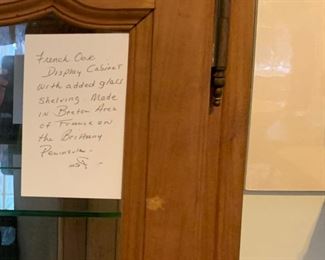 French Oak
Display Cabinet
with added glass
shelving. Made
in Breton Area
of France on
the Brittany
Peninsula.